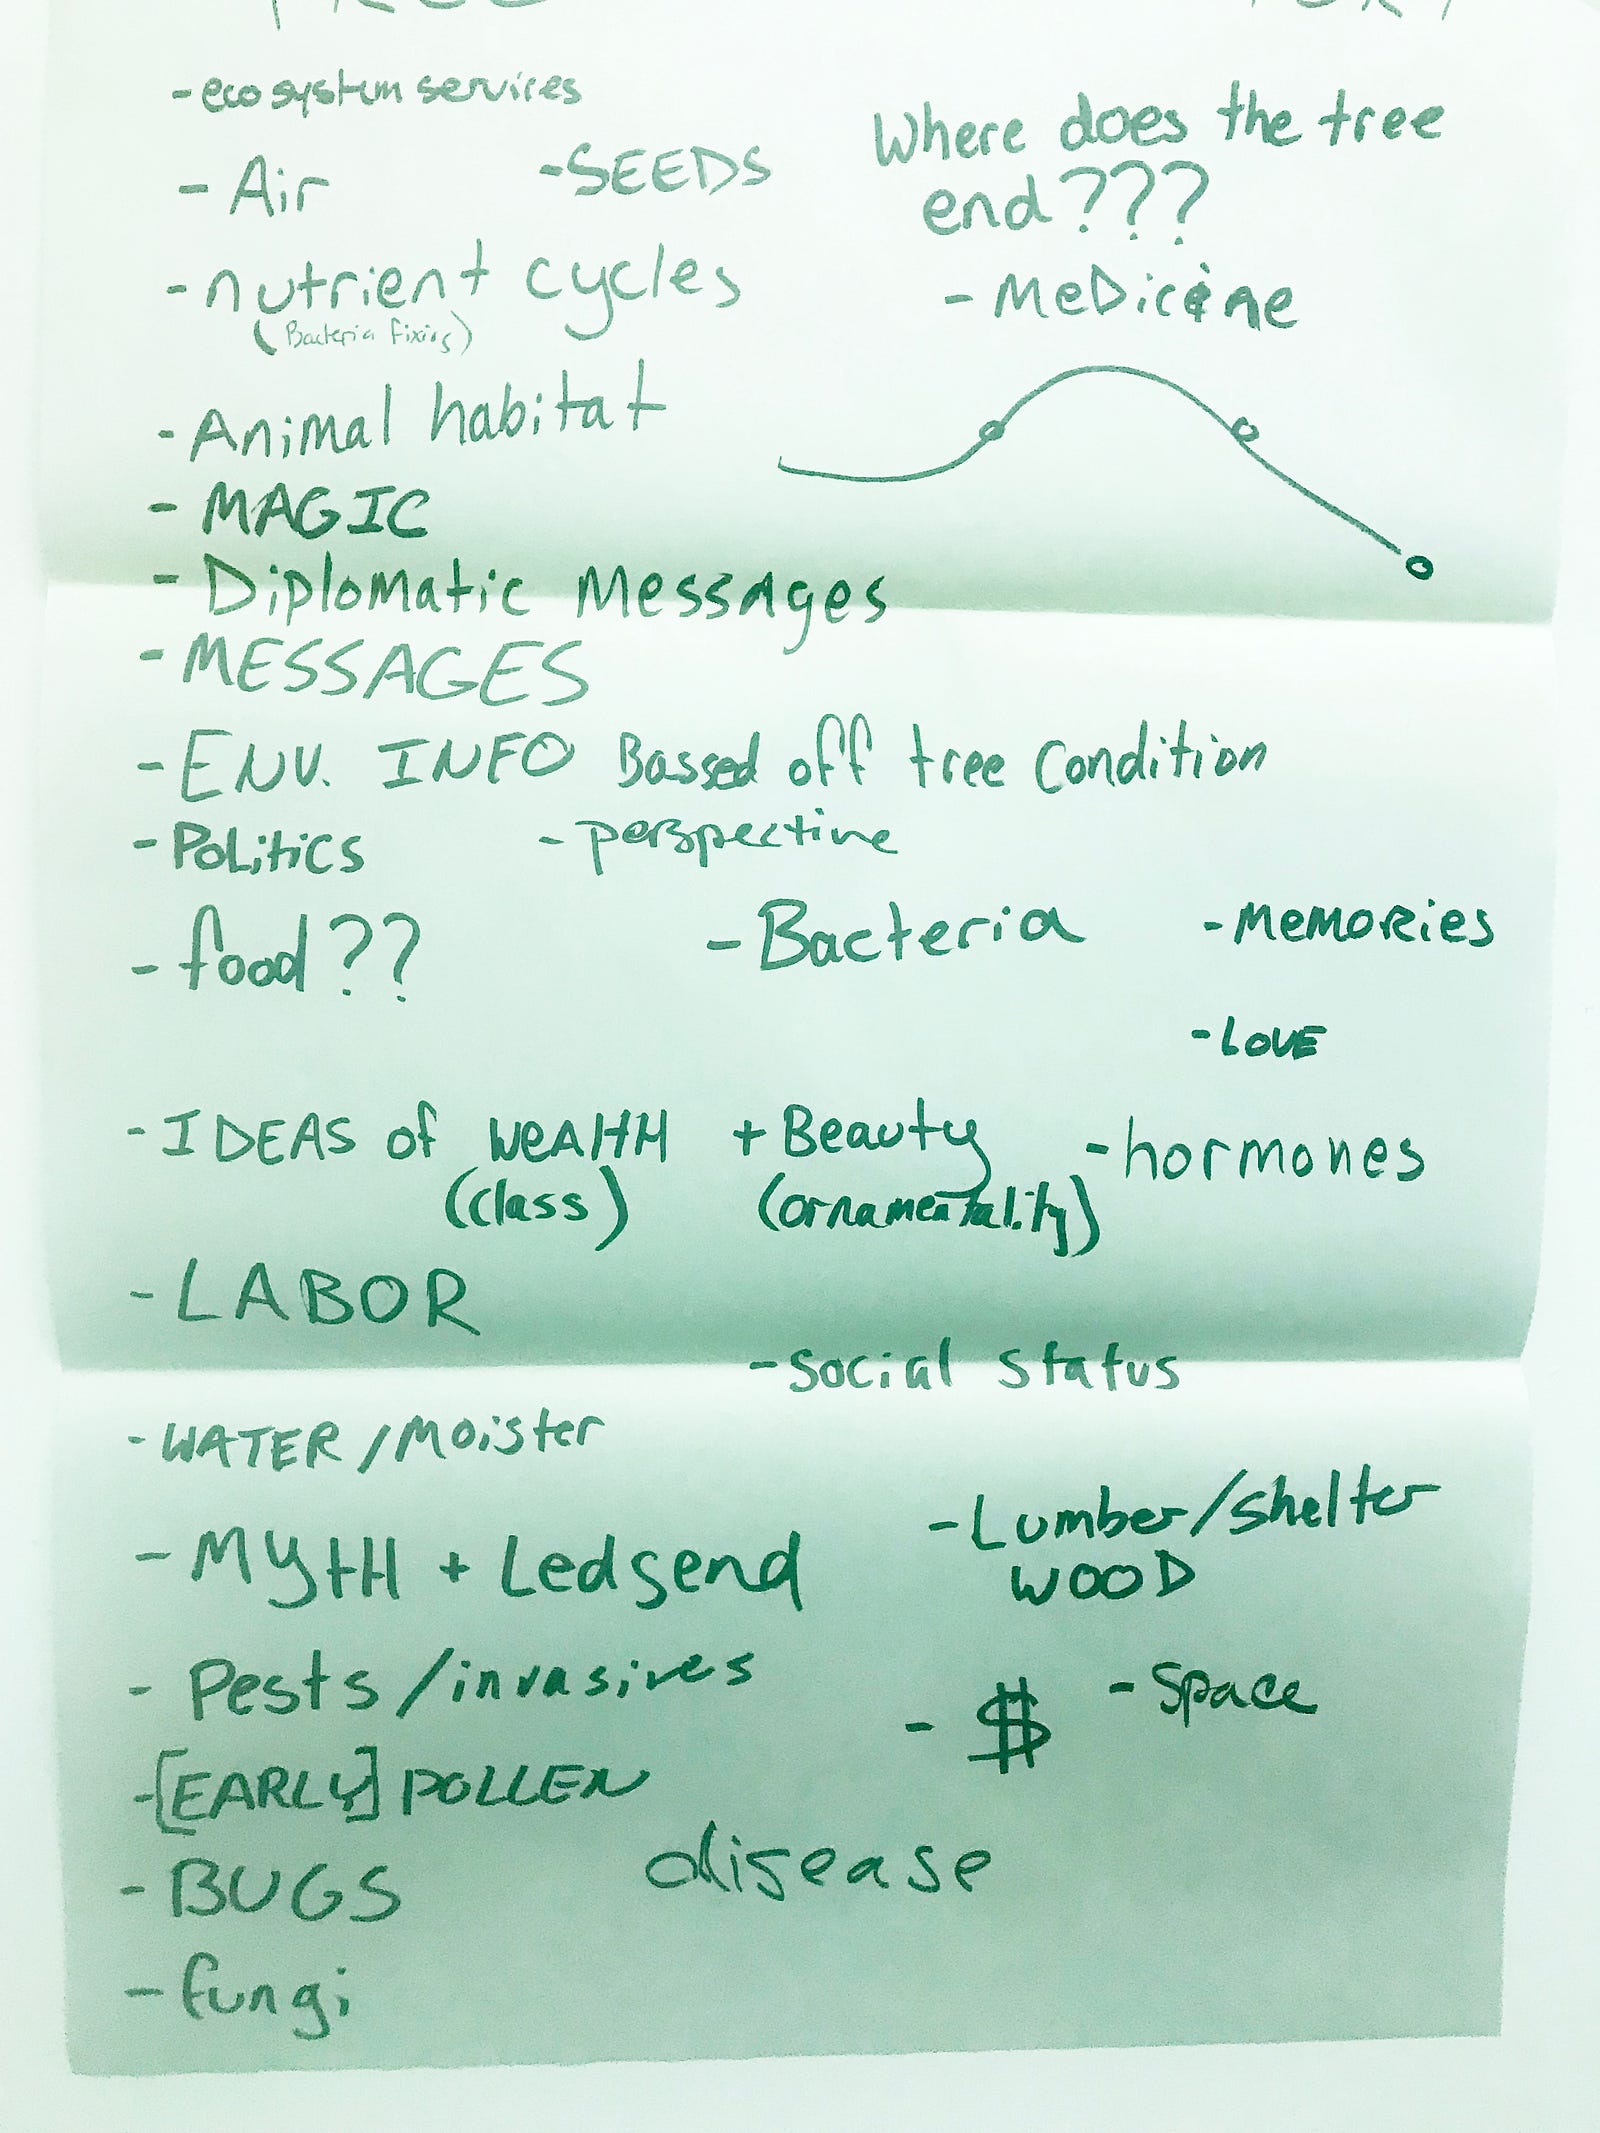 - ecosystem services
- Air
- SEEDS
Where does the tree
end???
- nutrient cycles
(Bacteria fixing)
- Medicine
- Animal habitat
- MAGIC
- Diplomatic Messages
- MESSAGES
- ENV. INFO Bassed off tree Condition
- Politics
- perspective
- food??
- Bacteria
- Memories
- LOVE
- IDEAS of WeAltH + Beauty
(class) (ornamentality)
- hormones
- LABOR
- Social Status
- WATER/Moister
- Lumber/Shelter
WOOD
- MytH + Ledgend
- Pests/invasives
- $
- Space
- [EARLY] POLLEN
disease
- BUGS
- fungi